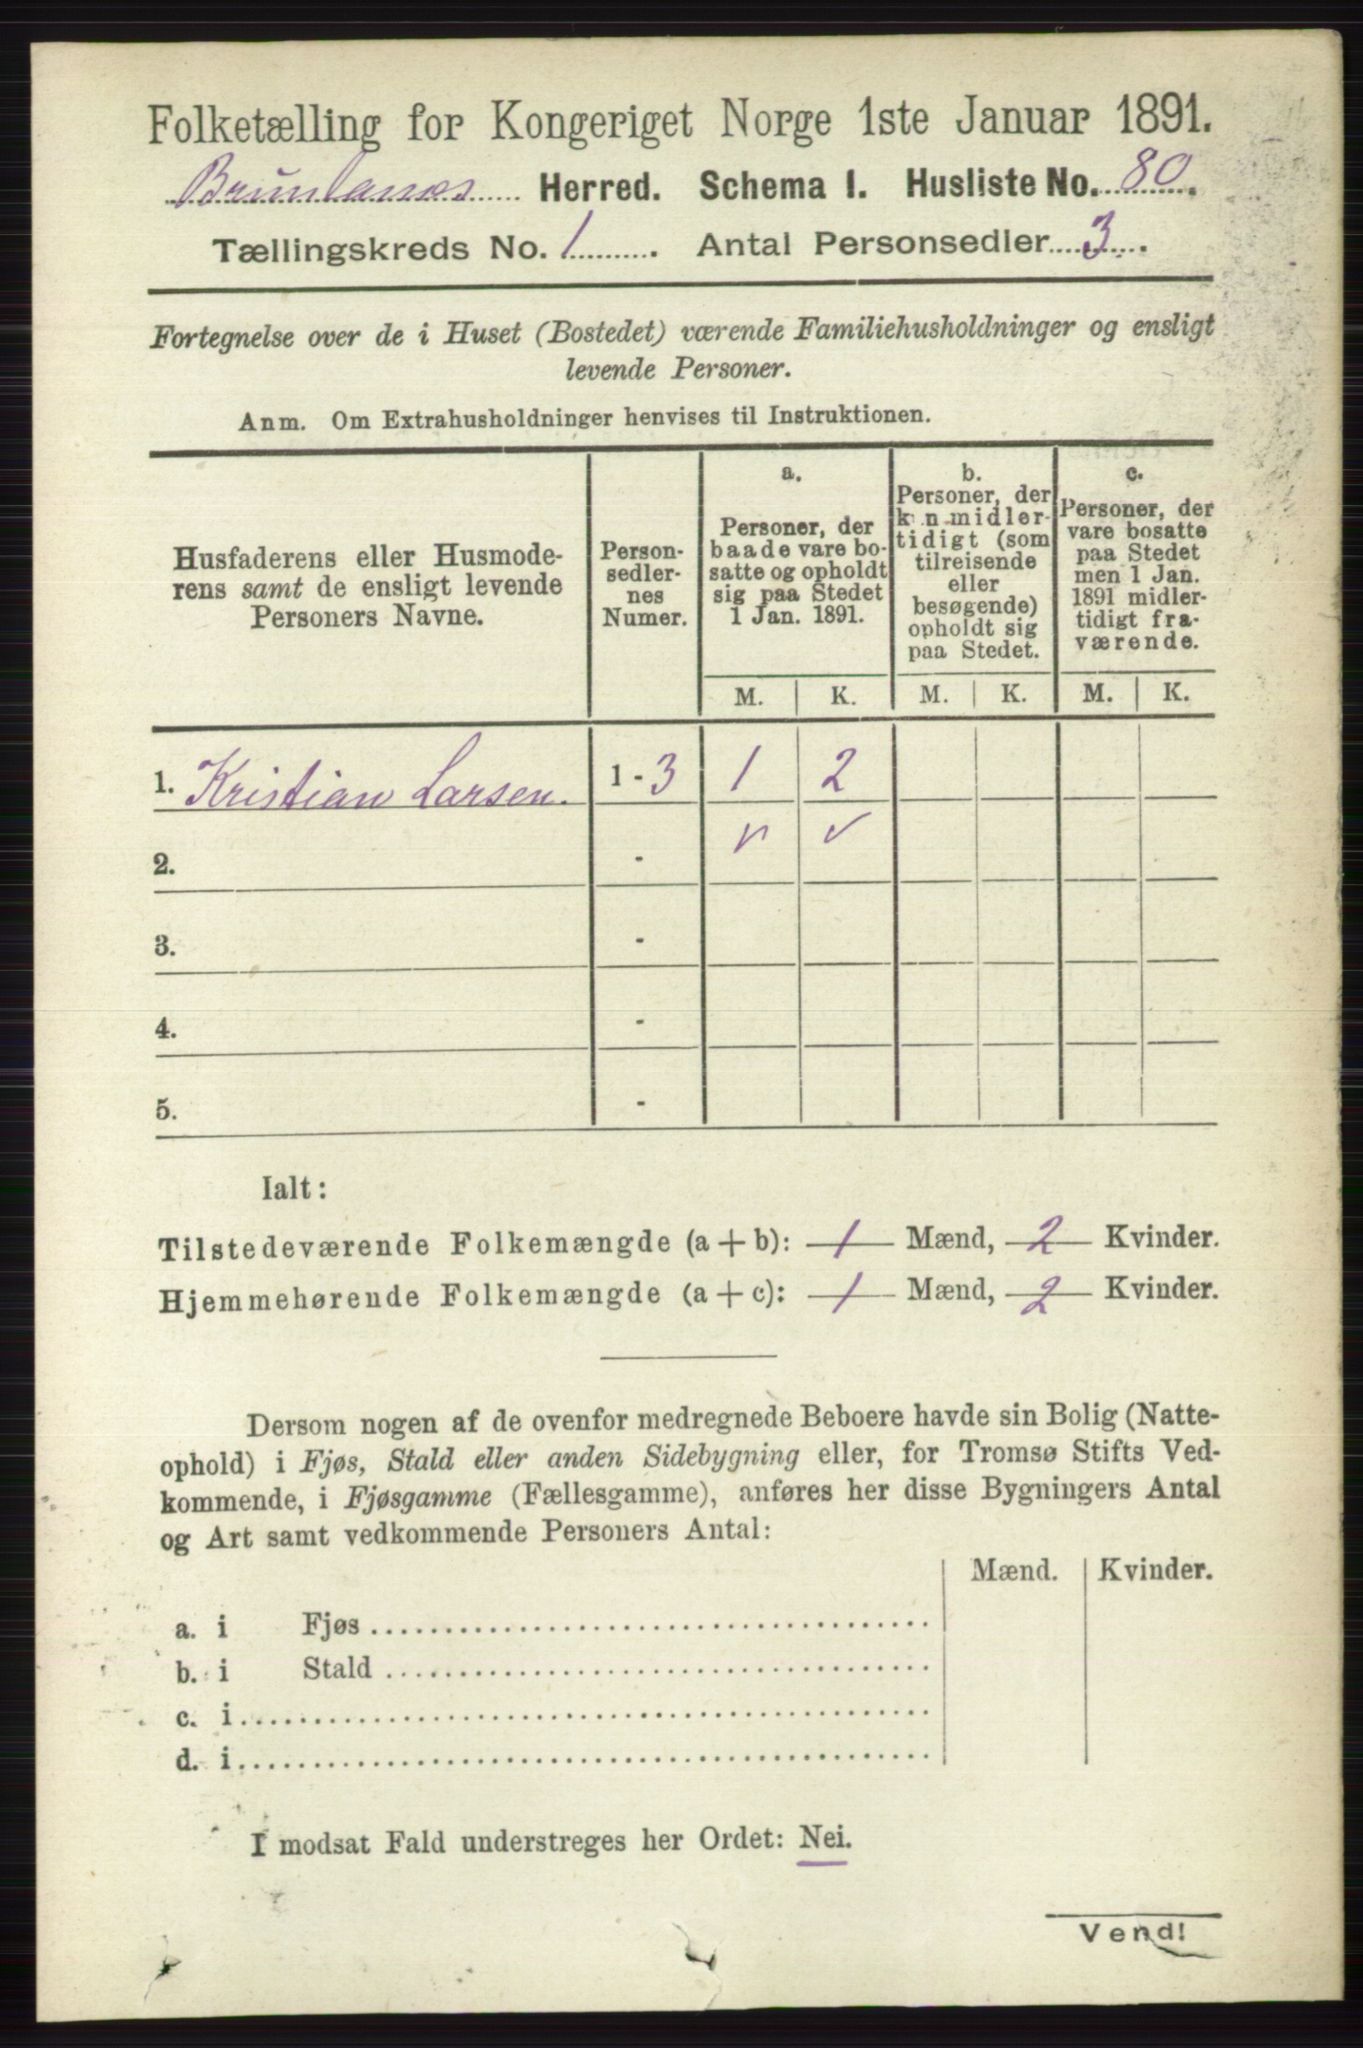 Folketælling for Kongeriget Norge 1ste Januar 1891.
Brunlanes Herred. Schema I. Husliste No. 80.
Tællingskreds No. 1. Antal Personsedler 3.
Fortegnelse over de i Huset (Bostedet) værende Familiehusholdninger og ensligt
levende Personer.
Anm. Om Extrahusholdninger henvises til Instruktionen.
Husfaderens eller Husmode-
rens samt de ensligt levende
Personers Navne.
Person-
sedler-
nes
Numer.
a.
Personer, der
baade vare bo-
satte og opholdt
sig paa Stedet
1 Jan. 1891.
b.
Personer, der
kun midler-
tidigt (som
tilreisende
eller
besøgende)
opholdt sig
paa Stedet.
c.
Personer, der
vare bosatte
paa Stedet
men 1 Jan.
1891 midler-
tidigt fra-
værende.
M. K. M. K. M. K.
1. Kristian Larsen. 1 - 3 1 2
2. - ✓ ✓
3. -
4. -
5. -
Ialt:
Tilstedeværende Folkemængde (a + b): 1 Mænd, 2 Kvinder.
Hjemmehørende Folkemængde (a + c): 1 Mænd, 2 Kvinder.
Dersom nogen af de ovenfor medregnede Beboere havde sin Bolig (Natte-
ophold) i Fjøs, Stald eller anden Sidebygning eller, for Tromsø Stifts Ved-
kommende, i Fjøsgamme (Fællesgamme), anføres her disse Bygningers Antal
og Art samt vedkommende Personers Antal:
Mænd. Kvinder.
a. i Fjøs
b. i Stald
c. i
d. i
I modsat Fald understreges her Ordet: Nei.
Vend!